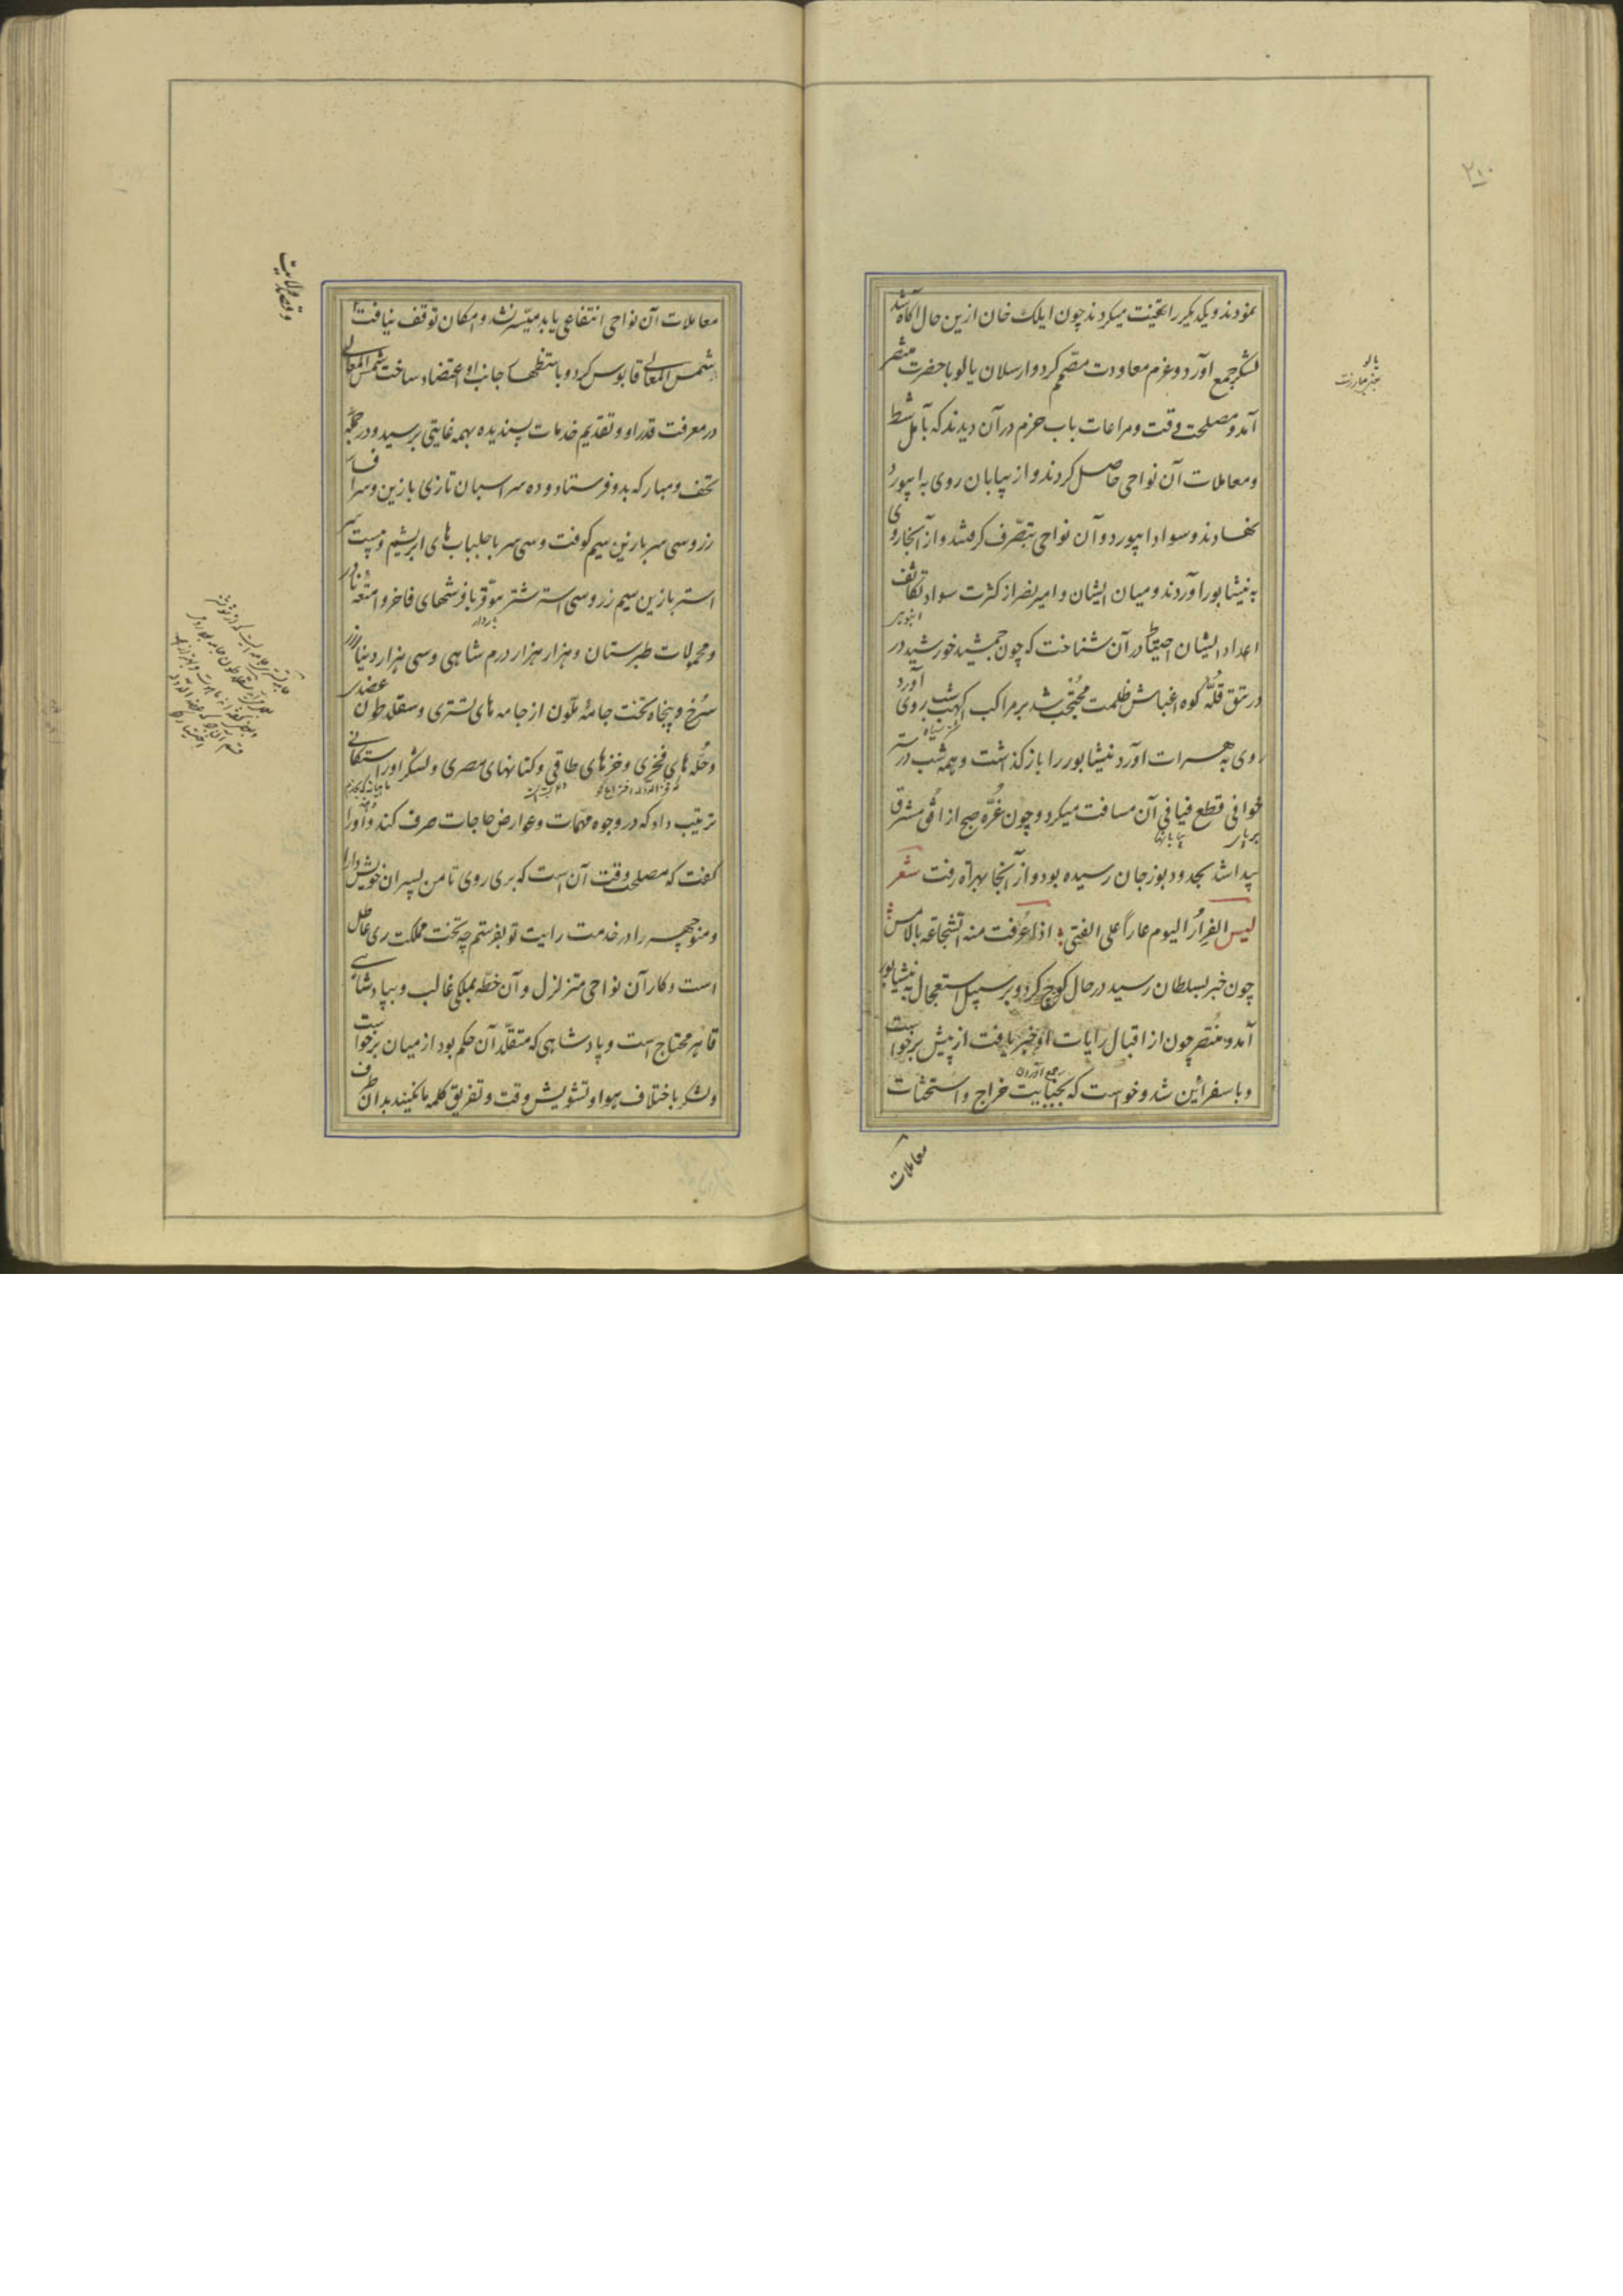 ۲۱۰
نمودند و یکدیگر را تهنیت میکردند چون ایلک خان ازین حال آگاه شد
لشکر جمع آورد و عزم معاودت مصمّم کرد و ارسلان یالو با حضرت منتصر
آمد و مصلحت وقت و مراعات باب حزم در آن دیدند که بآمل شط
و معاملات آن نواحی حاصل کردند و از بیابان روی به ابیورد
نهادند و سواد ابیورد و آن نواحی بتصّرف گرفتند و از آنجا روی
به نیشابور آوردند و میان ایشان و امیر نصر از کثرت سواد و تکاثف
انبوهی
اعداد ایشان احتیاط در آن شناخت که چون جمشید خورشید در
در تتق قلّهٔ کوه اغباش ظلمت محتجب شد بر مراکب اکهب شب روی آورد
روی به هرات آورد نیشابور را باز گذاشت و همه شب در
خوافی قطع فیافی آن مسافت میکرد و چون غرّه صبح از افق مشرق
بیابانها
پیدا شد بحدود بوزجان رسیده بود و از آنجا بهراة رفت شعر
لیس الفرارُ الیوم عاراً علی الفتی اذا عُرفت منه الشجاعة بالامس
چون خبر بسلطان رسید در حال کوچ کرد و بر سبیل استعجال به نیشابور
آمد و منتصر چون از اقبال رایات او خبر یافت از پیش برخواست
جمع آوردن
و باسفرائین شد و خواست که بجبایت خراج و استحثاث
معاملات
معاملات آن نواحی انتفاعی یابد میسّر نشد و امکان توقف نیافت
شمس المعالی قابوس کرد و باستظهار جانب او اعتضاد ساخت شمس المعالی
در معرفت قدر او و تقدیم خدمات پسندیده بهمه غایتی برسید و در جمله
تحف و مبار که بدو فرستاد و ده سر اسبان تازی با زین و سرافسار
زر و سی سر با زین سیم کوفت و سی سر با جلباب های ابریشم و بیست سر
استر با زین سیم زر و سی استر شتر موقر با فرشهای فاخر و امتعه نادر
و محمولات طبرستان و هزار هزار درم شاهی و سی هزار دینار زر
سُرخ و پنجاه تخت جامهٔ ملّون از جامه های تستری و سقلاطون عضدی
و حُلّه های فخری و خزهای طاقی و کتانهای مصری و لشکر او را
ترتیب داد که در وجوه مهّمات و عوارض حاجات صرف کند و او را
گفت که مصلحت وقت آن است که بری روی تا من پسران خویش دارا
و منوچهر را در خدمت رایت تو بفرستم چه تخت مملکت ری عاطل
است و کار آن نواحی متزلزل و آن خطّه بملکی غالب و بپادشاهی
قاهر محتاج است و پادشاهی که متقلّد آن حکم بود از میان برخواست
و لشکر باختلاف هوا و تشویش وقت و تفریق کلمه مانیند بدان طرف